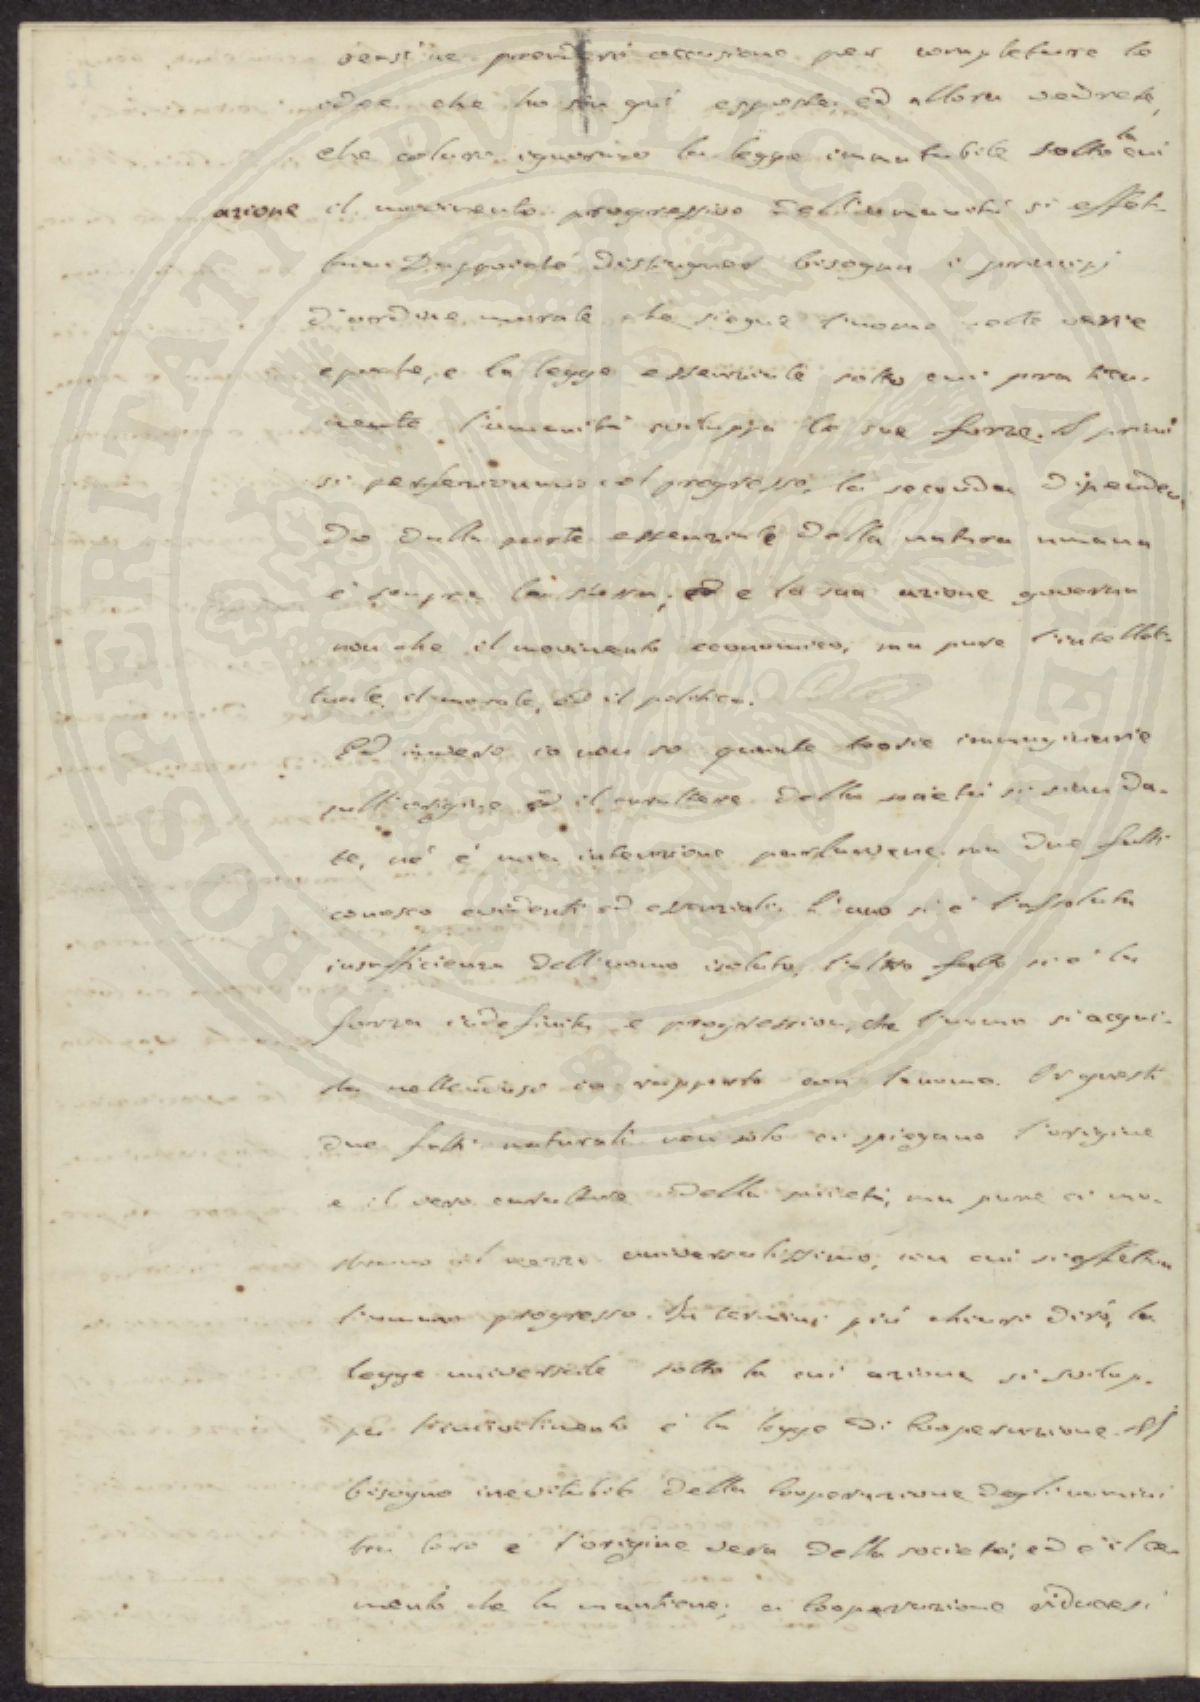 prenderò occasione per completare le
idee che ho sin qui esposte, ed allora vedrete,
che coloro ignorano la legge immutabile sotto la cui
azione il movimento progressivo dell'umanità si effet-
tua. Dapprima distinguer bisogna i principj
d'ordine morale che siegue l'uomo nelle varie
epoche, e la legge essenziale sotto cui pratica-
mente l'umanità sviluppa le sue forze. I primi
si perfezionano col progresso, la seconda dipenden-
do dalla parte essenziale della natura umana
è sempre la stessa, ed è la sua azione governa
non che il movimento economico, ma pure l'intellet-
tuale, il morale, ed il politico.
Ed invero io non so quante teorie immaginarie
sull'origine ed il carattere della società si sian da-
te, né è mia intenzione parlarvene, ma due fatti
conosco evidenti ed essenziali. L'uno si è l'assoluta
insufficienza dell'uomo isolato, l'altro fatto si è la
forza indefinita e progressiva, che l'uomo si acqui-
sta nell'entrare in rapporto con l'uomo. Or questi
due fatti naturali non solo ci spiegano l'origine
e il vero carattere della società, ma pure ci mo-
strano il mezzo universalissimo, con cui si effettua
l'umano progresso. In termini più chiari dirò, la
legge universale sotto la cui azione si svilup-
pa l'incivilimento è la legge di cooperazione. Il
bisogno inevitabile della cooperazione degli uomini
tra loro è l'origine vera della società; ed è il ce-
mento che la mantiene; a cooperazione ridursi